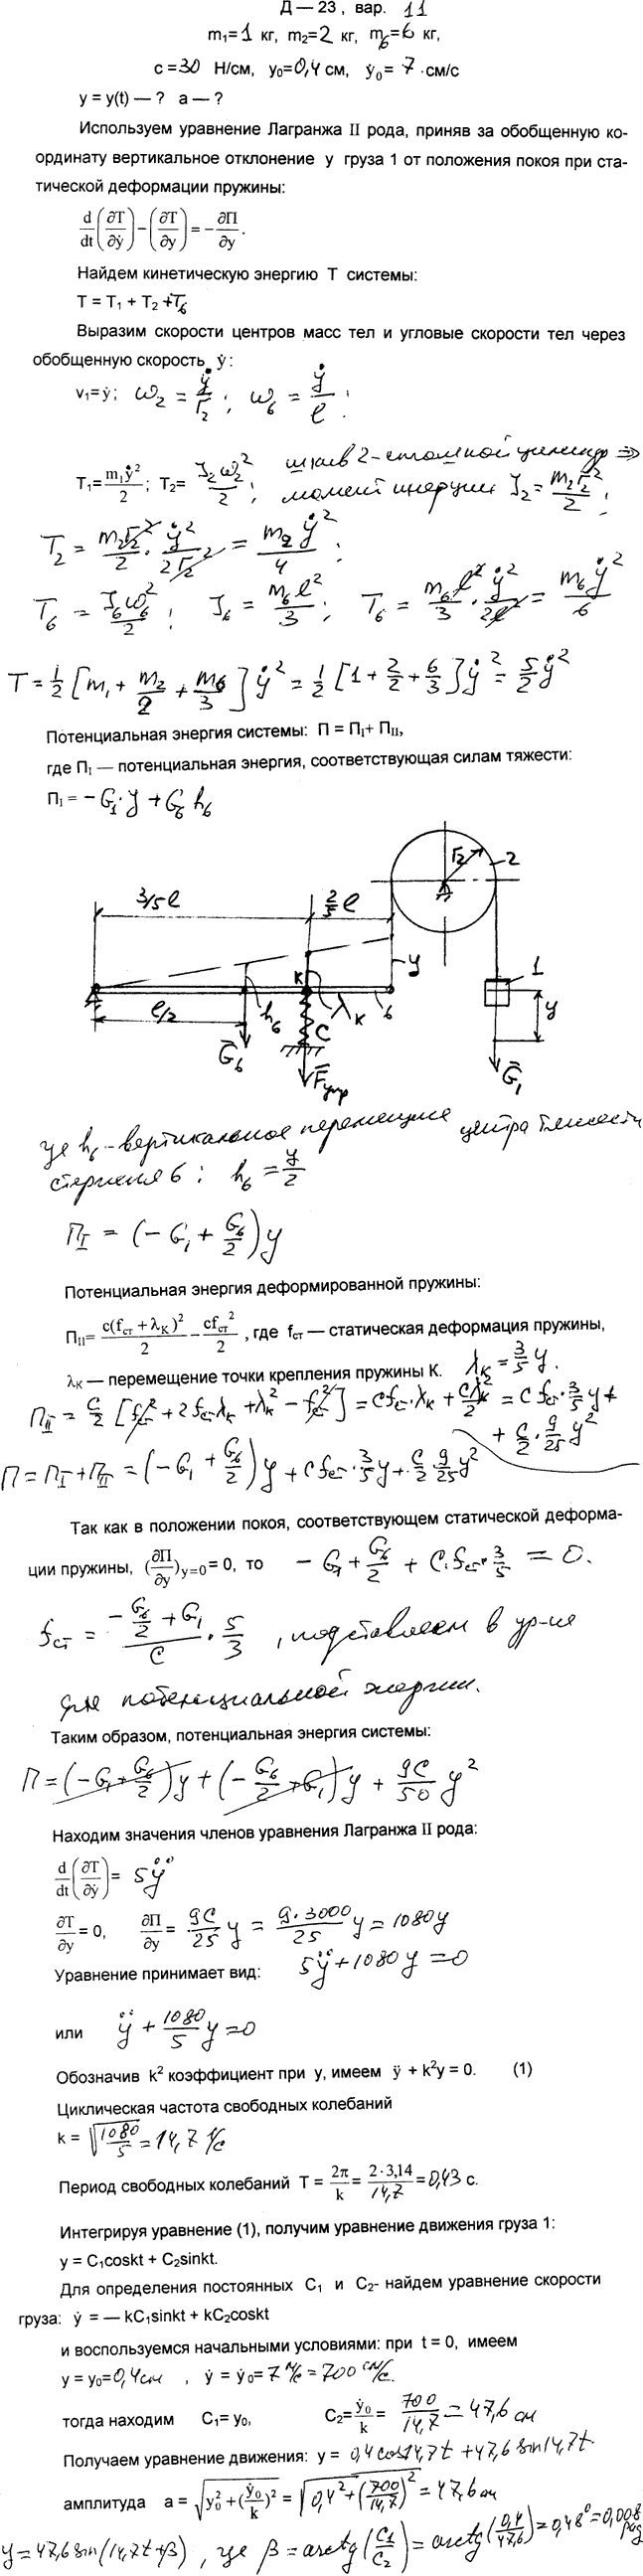 Д — 23 , вар. 11
m₁=1 кг, m₂=2 кг, m₆=6 кг,
c =30 Н/см, y₀=0,4 см, ẏ₀ = 7 ·см/с
y = y(t) — ? a — ?
Используем уравнение Лагранжа II рода, приняв за обобщенную ко-
ординату вертикальное отклонение y груза 1 от положения покоя при ста-
тической деформации пружины:
d/dt(∂T/∂ẏ) − (∂T/∂y) = −∂П/∂y.
Найдем кинетическую энергию T системы:
T = T₁ + T₂ + T₆
Выразим скорости центров масс тел и угловые скорости тел через
обобщенную скорость ẏ :
v₁= ẏ ; ω₂ = ẏ/r₂ ; ω₆ = ẏ/l ;
T₁= m₁ẏ²/2 ; T₂= J₂ω₂²/2 ; шкив 2 - сплошной цилиндр ⇒
момент инерции J₂ = m₂r₂²/2 ;
T₂ = m₂r₂²/2 · ẏ²/2r₂² = m₂ẏ²/4 ;
T₆ = J₆ω₆²/2 ; J₆ = m₆l²/3 ; T₆ = m₆l²/3 · ẏ²/2l² = m₆ẏ²/6
T = 1/2 [m₁ + m₂/2 + m₆/3] ẏ² = 1/2 [1 + 2/2 + 6/3] ẏ² = 5/2 ẏ²
Потенциальная энергия системы: П = П_I + П_II,
где П_I — потенциальная энергия, соответствующая силам тяжести:
П_I = −G₁·y + G₆h₆
r₂ 2
3/5 l 2/5 l
y
K 1
l/2 h₆ λ_K 6 y
G₆ C
F_упр G₁
где h₆ - вертикальное перемещение центра тяжести
стержня 6 : h₆ = y/2
П_I = (−G₁ + G₆/2) y
Потенциальная энергия деформированной пружины:
П_II = c(f_ст + λ_K)²/2 − cf_ст²/2 , где f_ст — статическая деформация пружины,
λ_K — перемещение точки крепления пружины К. λ_K = 3/5 y.
П_II = c/2 [f_ст² + 2f_ст λ_K + λ_K² − f_ст²] = c f_ст · λ_K + cλ_K²/2 = c f_ст · 3/5 y +
+ c/2 · 9/25 y²
П = П_I + П_II = (−G₁ + G₆/2) y + c f_ст · 3/5 y + c/2 · 9/25 y²
Так как в положении покоя, соответствующем статической деформа-
ции пружины, (∂П/∂y)_y=0 = 0, то −G₁ + G₆/2 + C·f_ст · 3/5 = 0.
f_ст = (−G₆/2 + G₁)/c · 5/3 , подставляем в ур-ие
для потенциальной энергии.
Таким образом, потенциальная энергия системы:
П = (−G₁ + G₆/2) y + (−G₆/2 + G₁) y + 9c/50 y²
Находим значения членов уравнения Лагранжа II рода:
d/dt(∂T/∂ẏ) = 5ÿ
∂T/∂y = 0, ∂П/∂y = 9c/25 y = 9·3000/25 y = 1080y
Уравнение принимает вид: 5ÿ + 1080 y = 0
или ÿ + 1080/5 y = 0
Обозначив k² коэффициент при y, имеем ÿ + k²y = 0. (1)
Циклическая частота свободных колебаний
k = √(1080/5) = 14,7 1/с
Период свободных колебаний T = 2π/k = 2·3,14/14,7 = 0,43 с.
Интегрируя уравнение (1), получим уравнение движения груза 1:
y = C₁coskt + C₂sinkt.
Для определения постоянных C₁ и C₂- найдем уравнение скорости
груза: ẏ = — kC₁sinkt + kC₂coskt
и воспользуемся начальными условиями: при t = 0, имеем
y = y₀=0,4 см , ẏ = ẏ₀= 7 м/с = 700 см/с.
тогда находим C₁= y₀, C₂= ẏ₀/k = 700/14,7 = 47,6 см
Получаем уравнение движения: y = 0,4 cos14,7t + 47,6 sin14,7t
амплитуда a = √(y₀² + (ẏ₀/k)²) = √(0,4² + (700/14,7)²) = 47,6 см
y = 47,6 sin(14,7t + β) , где β = arctg(C₁/C₂) = arctg(0,4/47,6) = 0,48° = 0,008 рад